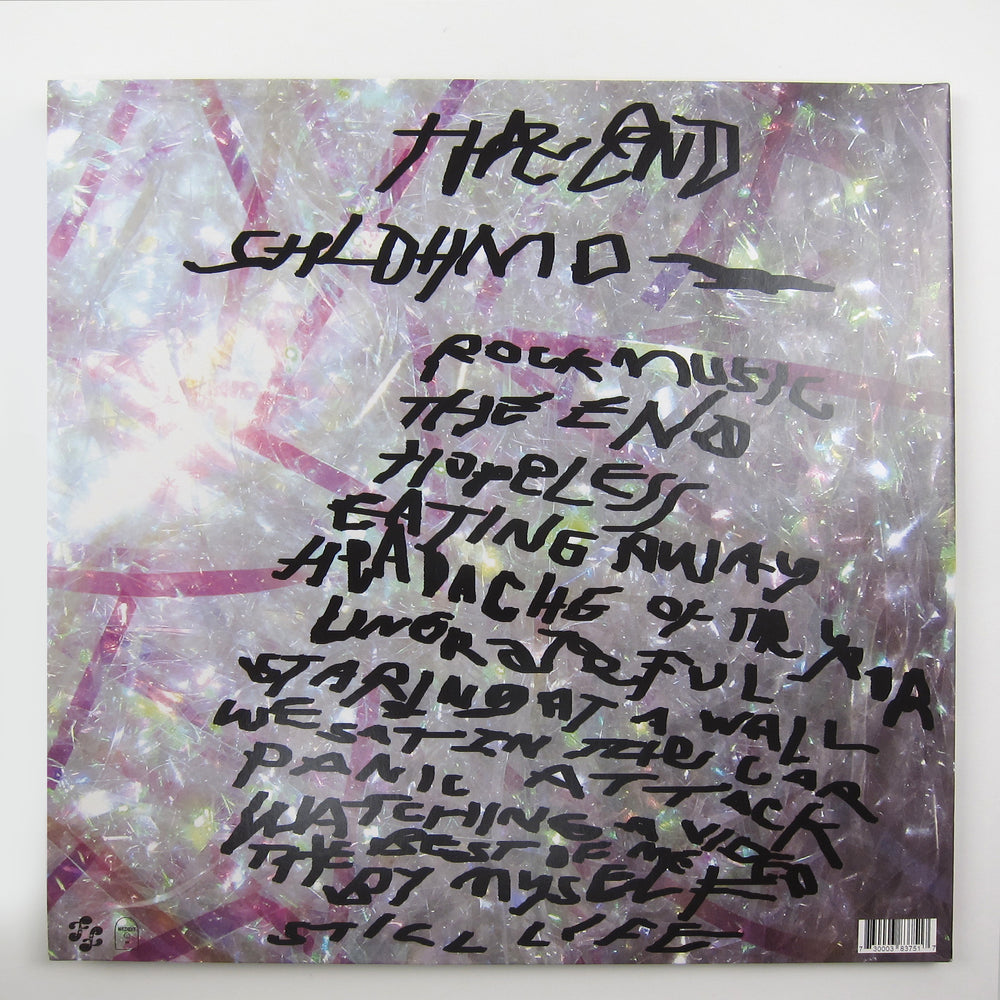 THE END
SHLOHMO
ROCK MUSIC
THE END
HOPELESS
EATING AWAY
HEADACHE OF THE YEAR
UNGRATEFUL
STARING AT A WALL
WE SAT IN THE CAR
PANIC ATTACK
WATCHING A VIDEO
THE BEST OF ME
BY MYSELF
STILL LIFE
FF
WEDIDIT
7 30003 83751 7